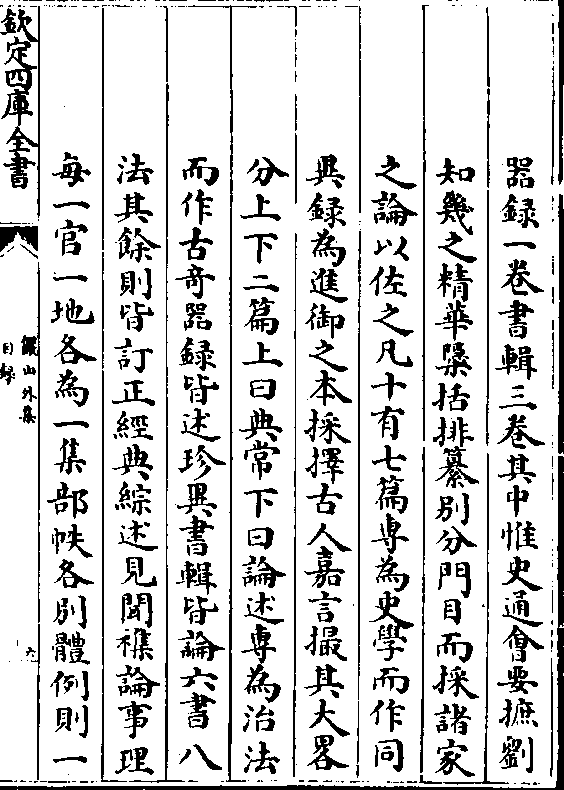 器録一卷書輯三卷其中惟史通㑹要摭劉
知幾之精華櫽括排纂别分門目而採諸家
之論以佐之凡十有七篇専為史學而作同
異録為進御之本採擇古人嘉言撮其大畧
分上下二篇上曰典常下曰論述専為治法
而作古竒器録皆述珍異書輯皆論六書八
法其餘則皆訂正經典綜述見聞襍論事理
每一官一地各為一集部帙各别體例則一
欽定四庫全書
儼山外集
目録
六